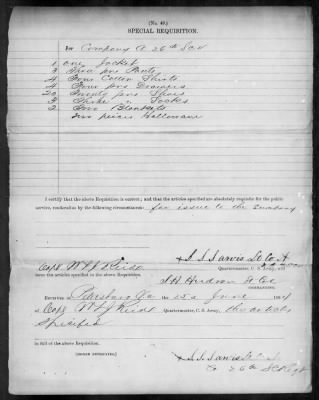 (No. 40.)
SPECIAL REQUISITION.
For Company A 26th
1 One Jacket
3 Three prs Pants
4 Four Cotton Shirts
4 Four prs Drawers
20 Twenty prs Shoes
3 Three " Socks
2 Two Blankets
Two
I certify that the above Requisition is correct; and that the articles specified are absolutely requisite for the public
service, rendered so by the following circumstances: for issue to the Company
J. J. Jarvis Lt Co A
Capt Quartermaster, U. S. Army, will
issue the articles specified in the above Requisition.
COMMANDING.
RECEIVED at Petersburg Va the of June 1864
of Capt Quartermaster, C. S. Army, the articles
Specified
in full of the above Requisition.
(SIGNED DUPLICATES.)
J. J. Jarvis
Co 26th